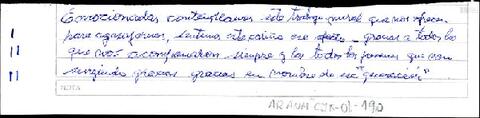 Emocionadas contemplamos este trabajo mural que nos ofrecen
para agradecernos, sentimos ese cariño ese afecto - gracias a todos los
que nos acompañaron siempre y a todos los jovenes que van
surgiendo gracias gracias en nombre de esa "generación"
NOTA
ARANM CJX-01-190